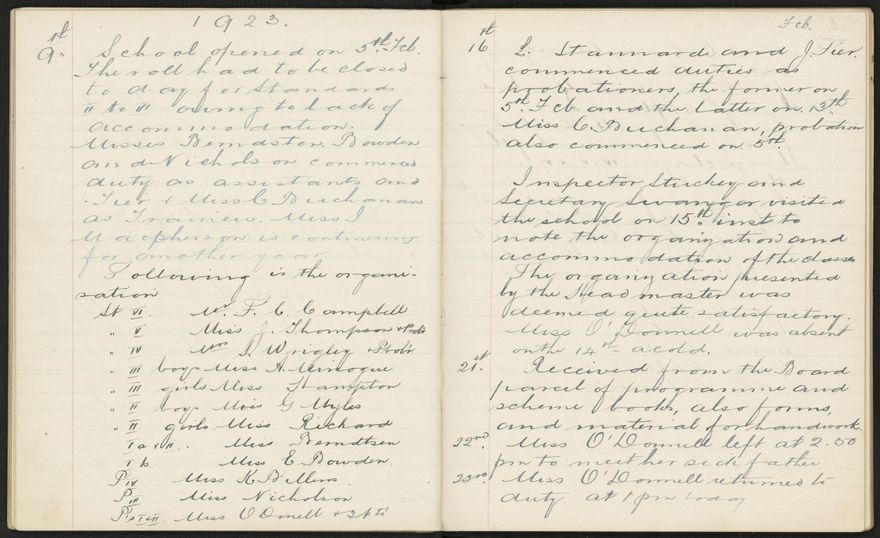 1923.
9th. School opened on 5th Feb.
The roll had to be closed
to day for Standards
II to VI owing to lack of
accommodation.
Misses Berndsten, Bowden
and Nicholson commenced
duty as assistants and
Tier & Miss C Buchanan
as Trainees. Miss I
Macpherson is continuing
for another year.
Following is the organi-
sation
St VI. Mr. F. C. Campbell
" V Miss J. Thompson & Probr
" IV Mrs J Wrigley & Probr
" III boys Miss A. Minogue
" III girls Miss Hampton
" II boys Miss G Myles
" II girls Miss Rickard
I a & II. Miss Berndtsen
I b Miss E. Bowden
P IV Miss K Billens
P III Miss Nicholson
P I & II Miss O Donnell & 3 pts
Feb.
16th. L. Stannard and J. Tier
commenced duties as
probationers, the former on
5th Feb and the latter on 13th
Miss C. Buchanan, probation
also commenced on 5th
Inspector Stuckey and
Secretary Swanger visited
the school on 15th inst to
note the organization and
accommodation of the classes
The organization presented
by the Headmaster was
deemed quite satisfactory.
Miss O'Donnell was absent
on the 14th a cold.
21st. Received from the Board
parcel of programme and
scheme books, also forms,
and material for handwork.
22nd. Miss O'Donnell left at 2.50
pm to meet her sick father
23rd. Miss O'Donnell returned to
duty at 1 pm today